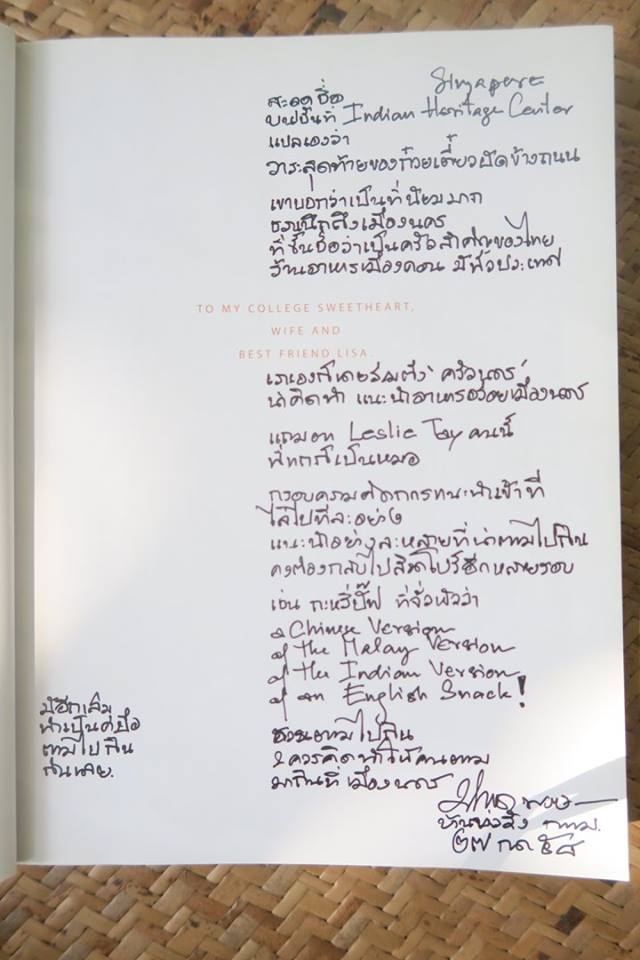 Singapore
สะดุดชื่อ
บนชั้นที่ Indian Heritage Center
แปลเองว่า
วาระสุดท้ายของก๋วยเตี๋ยวผัดข้างถนน
เขาบอกว่าเป็นที่นิยมมาก
ชวนนึกถึงเมืองนคร
ที่ขึ้นชื่อว่าเป็นครัวสำคัญของไทย
ร้านอาหารเมืองคอน มีทั่วประเทศ
TO MY COLLEGE SWEETHEART,
WIFE AND
BEST FRIEND LISA.
เราเองก็เคยร่วมตั้ง "ครัวนคร"
น่าคิดทำ แนะนำอาหารอร่อยเมืองนคร
แถมอก Leslie Tay คนนี้
พี่ทกก็เป็นหมอ
กรอบความคิดการแนะนำเข้าที่
ไล่ไปทีละอย่าง
แนะนำอย่างละหลายที่น่าตามไปกิน
คงต้องกลับไปสิงคโปร์อีกหลายรอบ
เช่น กะหรี่ปั๊ฟ ที่จั่วหัวว่า
a Chinese Version
of the Malay Version
of the Indian Version
of an English Snack!
ชวนตามไปกิน
และควรคิดทำให้คนตาม
มากินที่เมืองนคร
มีอีกเล่ม
ทำเป็นคู่มือ
ตามไปกิน
กันเลย.
บ้านท่งสิ่ง
๒๗ กค ๕๘